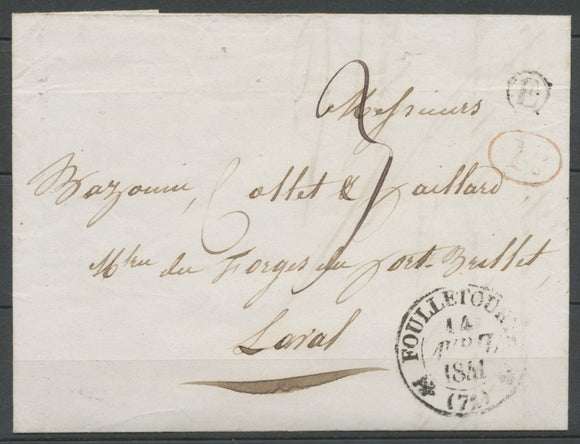 Messieurs
E
Bazouin, Collet & Paillard,
Mtres de Forges du Port-Brillet,
Laval
FOULLETOURTE
14
1841
(72)